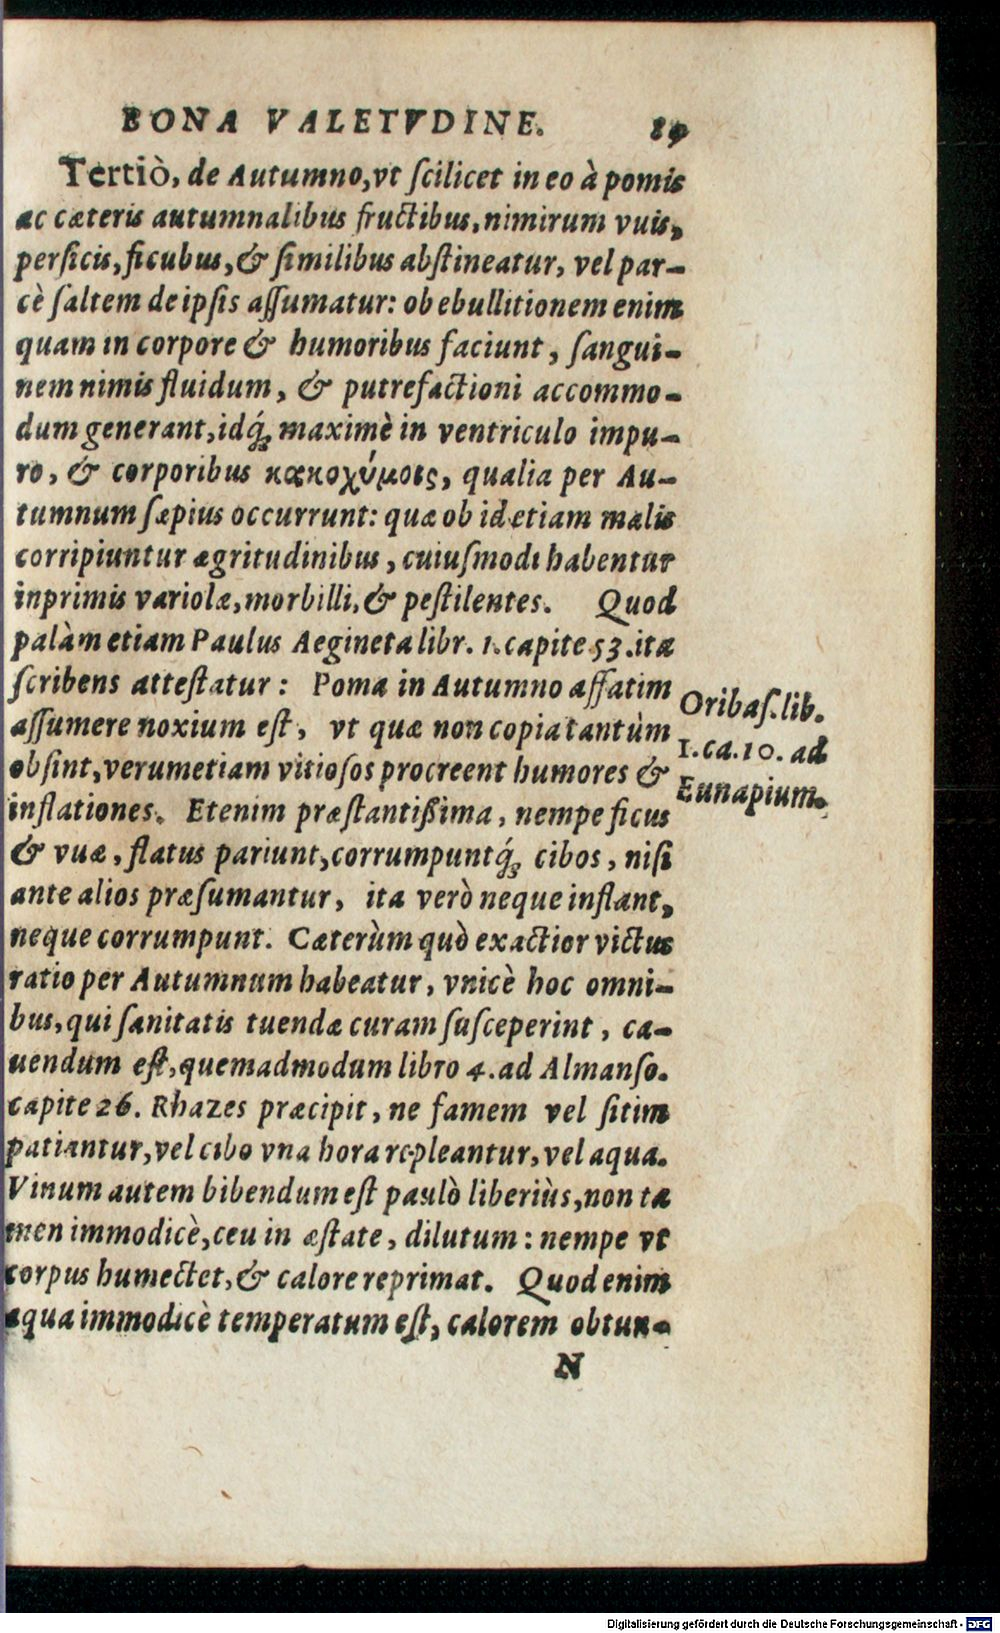 BONA VALETVDINE. 89
Tertiò, de Autumno, vt ſcilicet in eo à pomis
ac cæteris autumnalibus fructibus, nimirum vuis,
perſicis, ficubus, & ſimilibus abſtineatur, vel par-
cè ſaltem de ipſis aſſumatur: ob ebullitionem enim
quam in corpore & humoribus faciunt, ſangui-
nem nimis fluidum, & putrefactioni accommo-
dum generant, idq́ꝫ maximè in ventriculo impu-
ro, & corporibus κακοχύμοις, qualia per Au-
tumnum ſæpius occurrunt: quæ ob id etiam malis
corripiuntur ægritudinibus, cuiuſmodi habentur
inprimis variolæ, morbilli, & peſtilentes. Quod
palàm etiam Paulus Aegineta libr. 1. capite 53. ita
ſcribens atteſtatur: Poma in Autumno affatim
aſſumere noxium eſt, vt quæ non copia tantùm
obſint, verumetiam vitioſos procreent humores &
inflationes. Etenim præſtantißima, nempe ficus
& vuæ, flatus pariunt, corrumpuntq́ꝫ cibos, niſi
ante alios præſumantur, ita verò neque inflant,
neque corrumpunt. Cæterùm quò exactior victus
ratio per Autumnum habeatur, vnicè hoc omni-
bus, qui ſanitatis tuendæ curam ſuſceperint, ca-
uendum eſt, quemadmodum libro 4. ad Almanſo.
capite 26. Rhazes præcipit, ne famem vel ſitim
patiantur, vel cibo vna hora repleantur, vel aqua.
Vinum autem bibendum eſt paulò liberiùs, non ta
men immodicè, ceu in æſtate, dilutum: nempe vt
corpus humectet, & calore reprimat. Quod enim
aqua immodicè temperatum eſt, calorem obtun-
N
Oribaſ. lib.
1. ca. 10. ad
Eunapium.
Digitalisierung gefördert durch die Deutsche Forschungsgemeinschaft - DFG